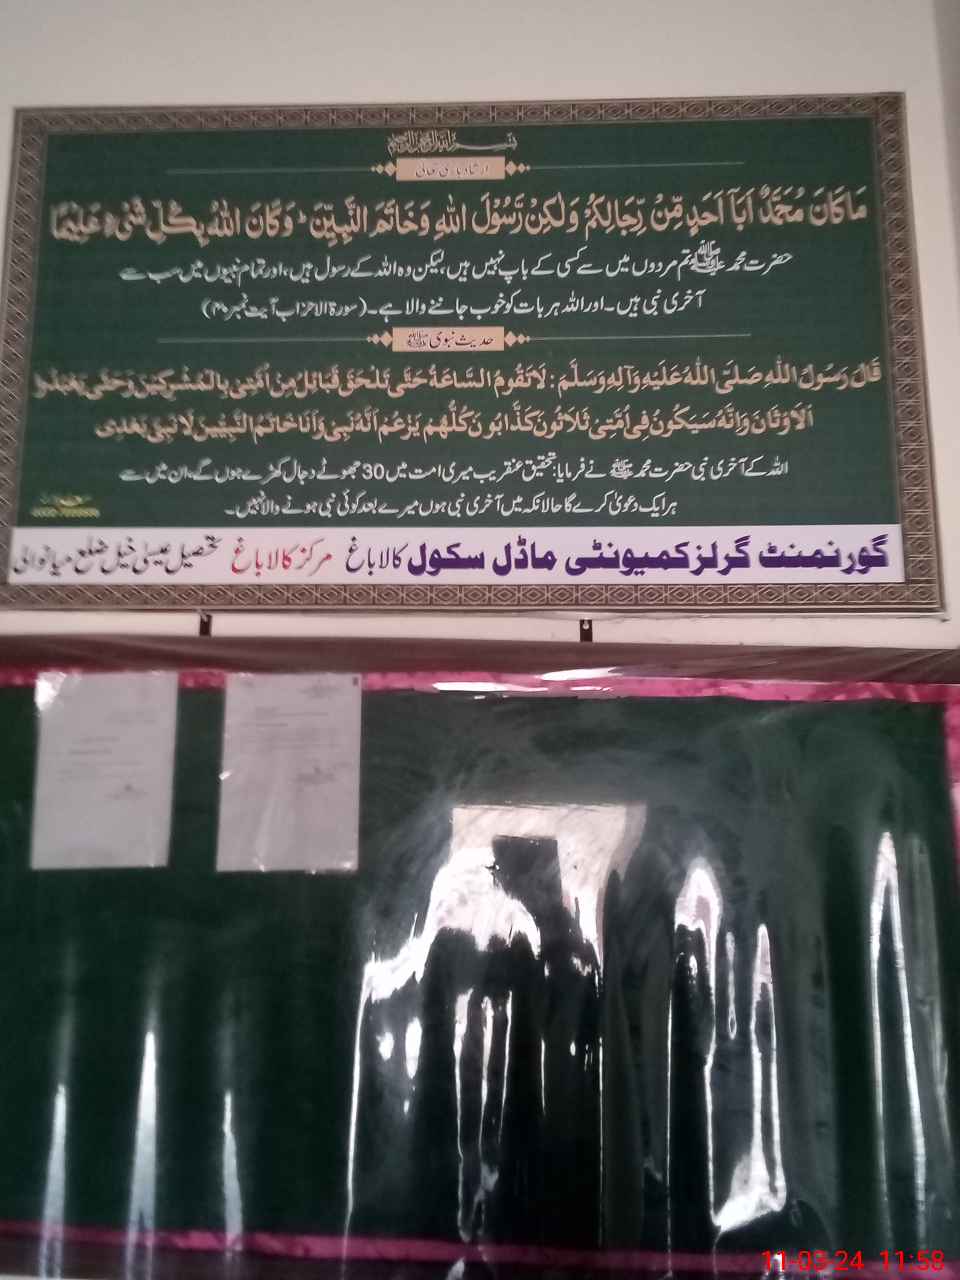 بسم اللہ الرحمن الرحیم
ارشاد باری تعالیٰ
مَا كَانَ مُحَمَّدٌ اَبَآ اَحَدٍ مِّنْ رِّجَالِكُمْ وَلٰكِنْ رَّسُوْلَ اللّٰهِ وَخَاتَمَ النَّبِيّٖنَ ؕ وَكَانَ اللّٰهُ بِكُلِّ شَیْءٍ عَلِيْمًا
حضرت محمد ﷺ تم مردوں میں سے کسی کے باپ نہیں ہیں، لیکن وہ اللہ کے رسول ہیں، اور تمام نبیوں میں سب سے
آخری نبی ہیں۔ اور اللہ ہر بات کو خوب جاننے والا ہے۔ (سورۃ الاحزاب آیت نمبر ۴۰)
حدیث نبوی ﷺ
قَالَ رَسُولُ اللهِ صَلَّى اللهُ عَلَيْهِ وَآلِهٖ وَسَلَّمَ : لَا تَقُومُ السَّاعَةُ حَتَّى تَلْحَقَ قَبَائِلُ مِنْ اُمَّتِى بِالْمُشْرِكِيْنَ وَحَتَّى يَعْبُدُوا
اَلَاوْثَانَ وَاِنَّهُ سَيَكُونُ فِى اُمَّتِىْ ثَلَاثُونَ كَذَّابُونَ كُلُّهُمْ يَزْعُمُ اَنَّهُ نَبِى وَاَنَا خَاتَمُ النَّبِيّيْنَ لَا نَبِى بَعْدِى
اللہ کے آخری نبی حضرت محمد ﷺ نے فرمایا: تحقیق عنقریب میری امت میں 30 جھوٹے دجال کھڑے ہوں گے، ان میں سے
ہر ایک دعویٰ کرے گا حالانکہ میں آخری نبی ہوں میرے بعد کوئی نبی ہونے والا نہیں۔
گورنمنٹ گرلز کمیونٹی ماڈل سکول کالاباغ مرکز کالاباغ تحصیل عیسیٰ خیل ضلع میانوالی
11-03-24 11:58